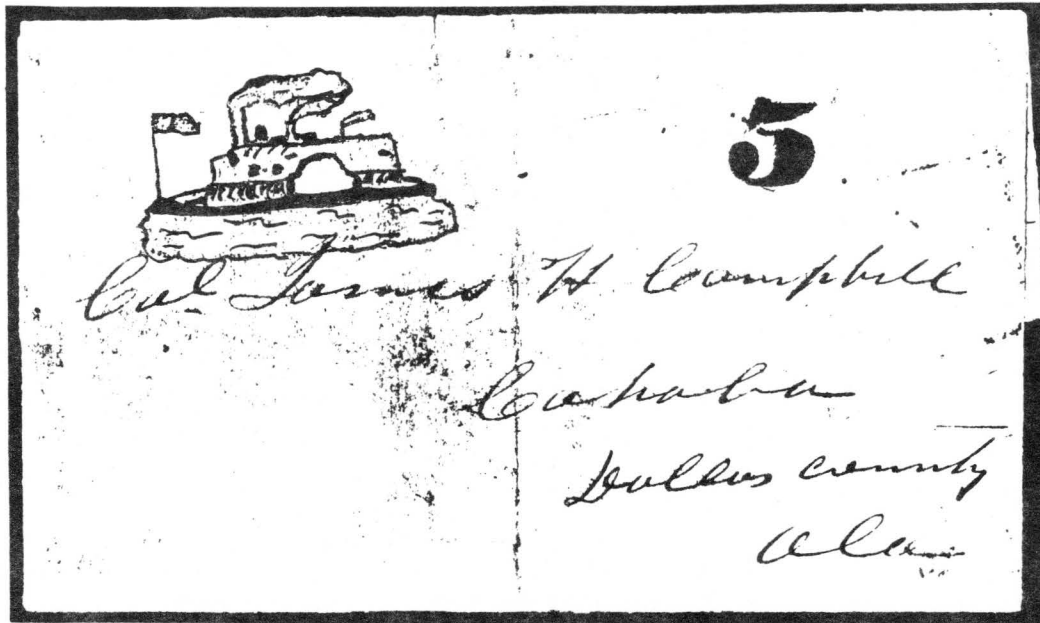 5
Col James H Campbell
Cahaba
Dallas county
Ala